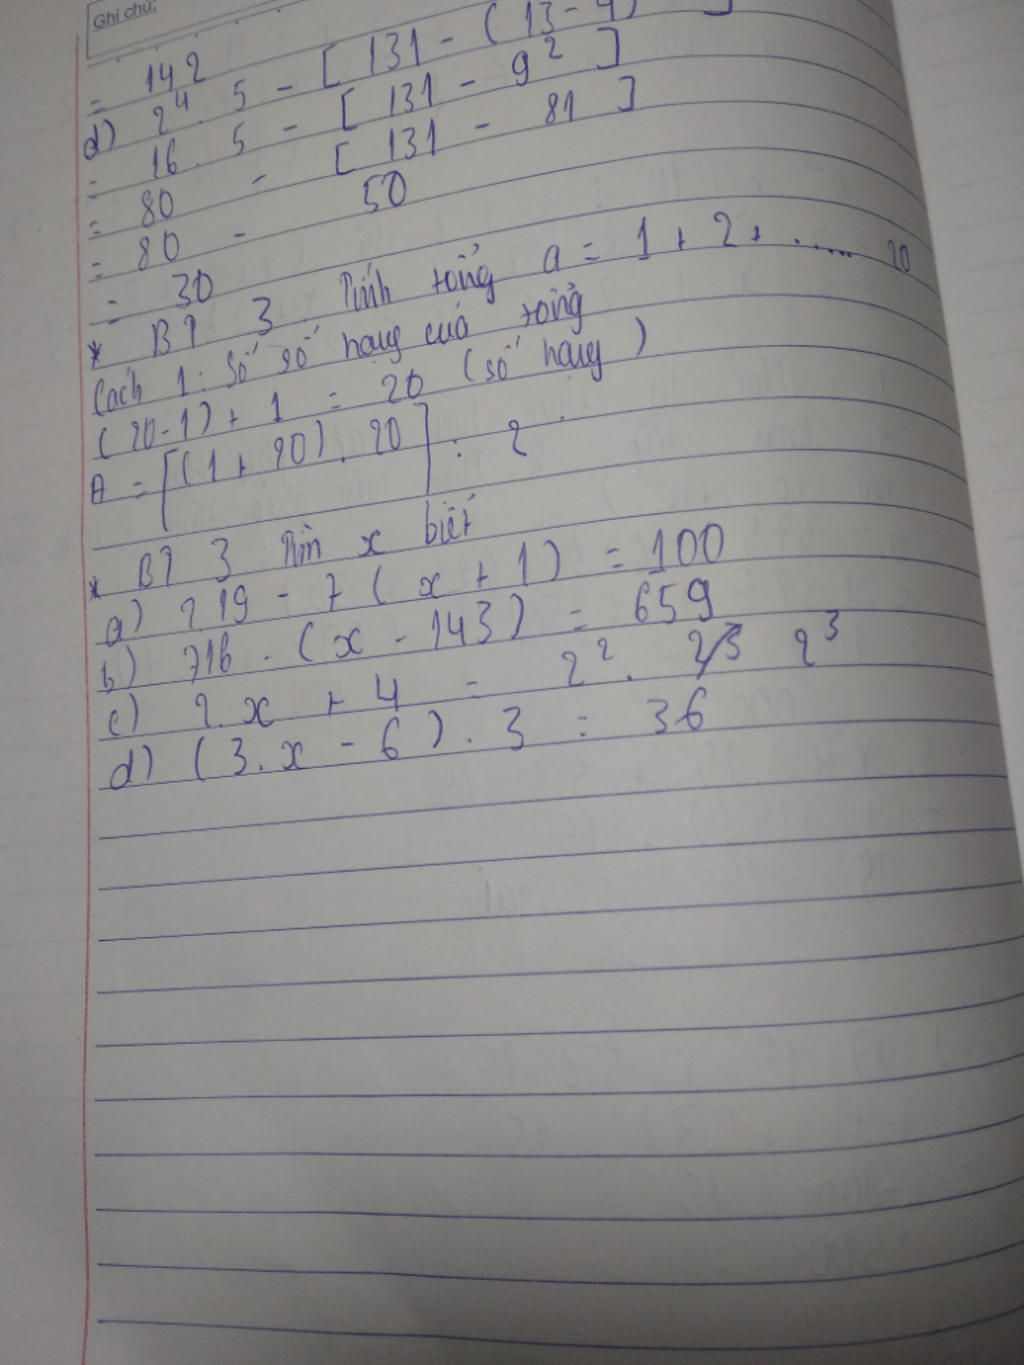 Ghi chú:
= 142
d) 2⁴. 5 - [ 131 - ( 13 - 4)  ]
= 16 . 5 - [ 131 - 9² ]
= 80 - [ 131 - 81 ]
= 80 - 50
= 30
* BT 3 Tính tổng a = 1 + 2 + ...... 20
Cách 1: Số số hạng của tổng
(20-1) + 1 = 20 (số hạng)
A = [(1 + 20) . 20] : 2
* BT 3 Tìm x biết
a) 219 - 7 ( x + 1 ) = 100
b) 716 - (x - 143) = 659
c) 2.x + 4 = 2² . 2³
d) (3.x - 6) . 3 = 36